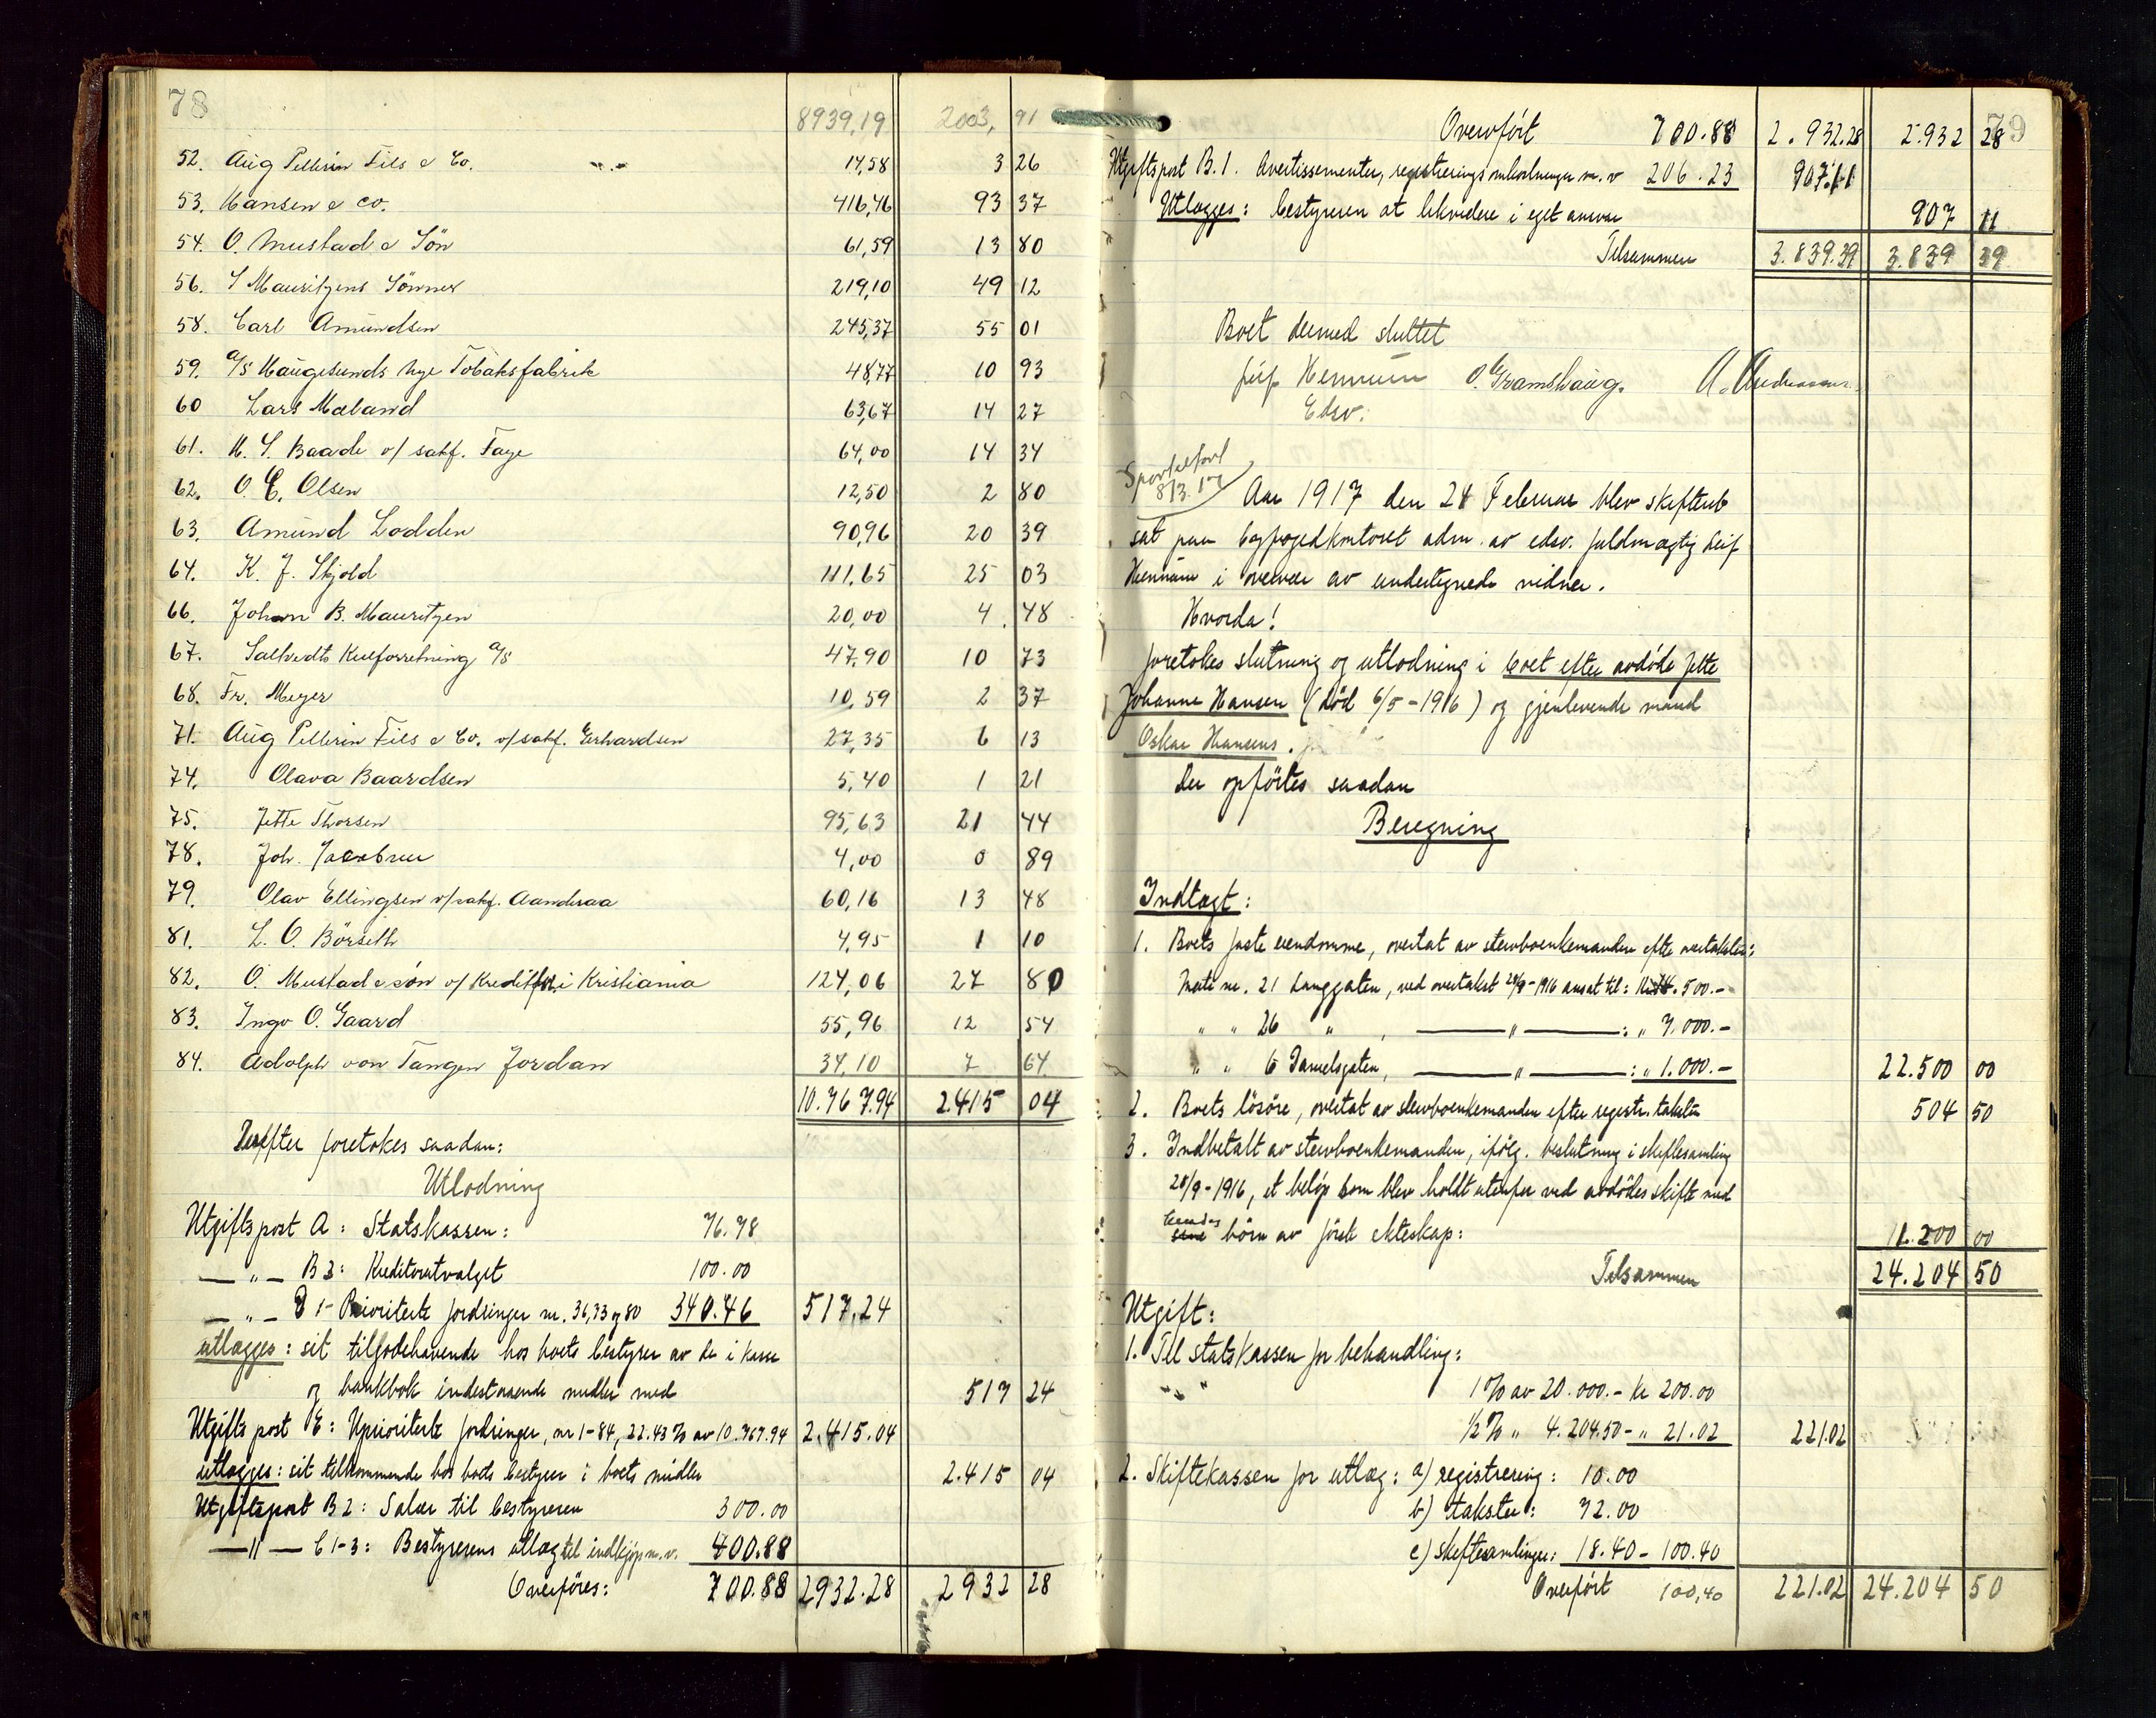 78
8939,19 2003, 91
52. Aug Pellerin Fils & Co. 14,58 3 26
53. Hansen & Co. 416,46 93 37
54. O. Mustad & Søn 61,59 13 80
56. S Mauritzens Sønner 219,10 49 12
58. Carl Amundsen 245,37 55 01
59. A/S Haugesunds nye Tobaksfabrik 48,77 10 93
60 Lars Mæland 63,67 14 27
61. H. S. Baade v/ sakf. Faye 64,00 14 34
62. O. E. Olsen 12,50 2 80
63. Amund Lodden 90,96 20 39
64. K. J. Skjold 111,65 25 03
66. Johan B. Mauritzen 20,00 4 48
67. Saltvedts Kulforretning A/S 47,90 10 73
68. Fr. Meyer 10,59 2 37
71. Aug Pellerin Fils & Co. v/sakf. Gerhardsen 27,35 6 13
74. Olava Baardsen 5,40 1 21
75. Jette Thorsen 95,63 21 44
78. Joh. Jacobsen 4,00 0 89
79. Olav Ellingsen v/sakf. Aanderaa 60,16 13 48
81. L. O. Børseth 4,95 1 10
82. O. Mustad & søn v/ Kreditfor. i Kristiania 124,06 27 80
83. Ingv O. Gaard 55,96 12 54
84. Adolph von Tangen Jordan 34,10 7 64
10.767.94 2.415 04
Derefter foretokes saadan:
Utlodning
Utgiftspost A: Statskassen: 76.78
—„— B 3: Kreditorutvalget 100.00
—„— D 1- Prioriterte fordringer nr. 36,73 og 80 340.46 517,24
utlægges: sit tilgodehavende hos boets bestyrer av de i kasse
og bankbok indestaaende midler med 517 24
Utgifts post E: Uprioriterte fordringer, nr 1-84, 22.43 % av 10.767.94 2.415.04
utlægges: sit tilkommende hos boets bestyrer i boets midler 2.415 04
Utgiftspost B 2: Salær til bestyreren 300.00
—"— C 1-3: Bestyrerens utlæg til indkjøp m.v. 400.88
Overføres: 700.88 2932.28 2932 28
79
Overført 700.88 2.932.28 2.932 28
Utgiftspost B.1. Avertissementer, registreringsomkostninger m.v 206.23 907.11
Utlægges: bestyreren at likvidere i eget ansvar 907 11
Tilsammen 3.839.39 3.839 39
Boet dermed sluttet
Leif Hennum O. Gramshaug. A. Andreassen
Edsv.
Sportelført
8/3.17
Aar 1917 den 28 Februar blev skifteret
sat paa byfogedkontoret adm. av edsv. fuldmægtig Leif
Hennum i overvær av undertegnede vidner.
Hvorda!
foretokes slutning og utlodning i boet efter avdøde Jette
Johanne Hansen (død 6/5-1916) og gjenlevende mand
Oskar Hansens.
Der opførtes saadan
Beregning
Indtægt:
1. Boets faste eiendomme, overtat av stervboenkemanden efter overtaksten:
Matr. nr. 21 Langgaten, ved overtakst 29/9-1916 ansat til: 500.-
" " 26 " , —— " ——: " 7.000.-
" " 6 Danielsgaten, —— " ——: " 1.000.- 22.500 00
2. Boets løsøre, overtat av stervboenkemanden efter registr. taksten 504 50
3. Indbetalt av stervboenkemanden, ifølg. beslutning i skiftesamling
28/9-1916, et beløp som blev holdt utenfor ved avdødes skifte med
hendes børn av første ekteskap: 1.200 00
Tilsammen 24.204 50
Utgift:
1. Til statskassen for behandling:
1 % av 20.000.- kr 200.00
1/2 % " 4.204.50 - " 21.02 221.02
2. Skiftekassen for utlæg: a) registrering: 10.00
b) takster: 72.00
c) skiftesamlinger: 18.40 - 100.40
Overført 100,40 221.02 24.204 50